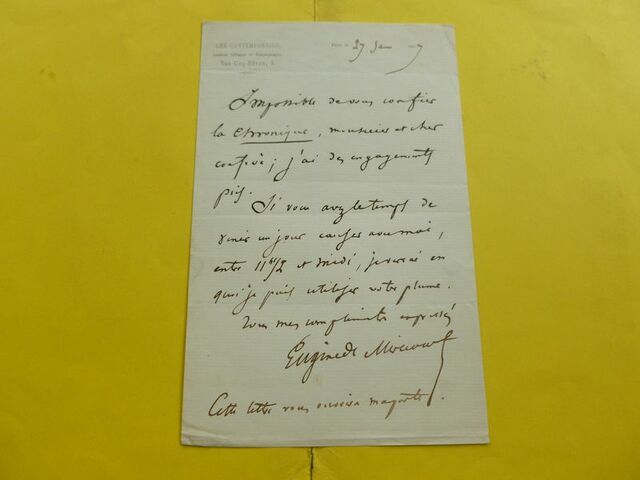 LES CONTEMPORAINS,
Rue Coq-Héron, 5.
Paris, le 27 Janv 7
Impossible de vous confier
la Chronique, monsieur et cher
confrère ; j'ai des engagements
pris.
Si vous avez le temps de
venir un jour causer avec moi,
entre 11 h 1/2 et midi, je verrai en
quoi je puis utiliser votre plume.
Tous mes compliments empressés
Eugène de Mirecourt
Cette lettre vous ouvrira ma porte.